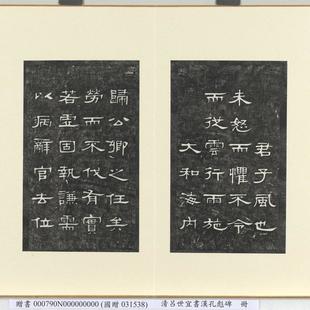 君子風也
未怒而懼不令
而從雲行雨施
大和海内
歸公卿之任矣
勞而不伐有實
若虛固執謙需
以病辭官去位
贈書 000790N000000000 (國贈 031538) 清呂世宜書漢孔彪碑 冊